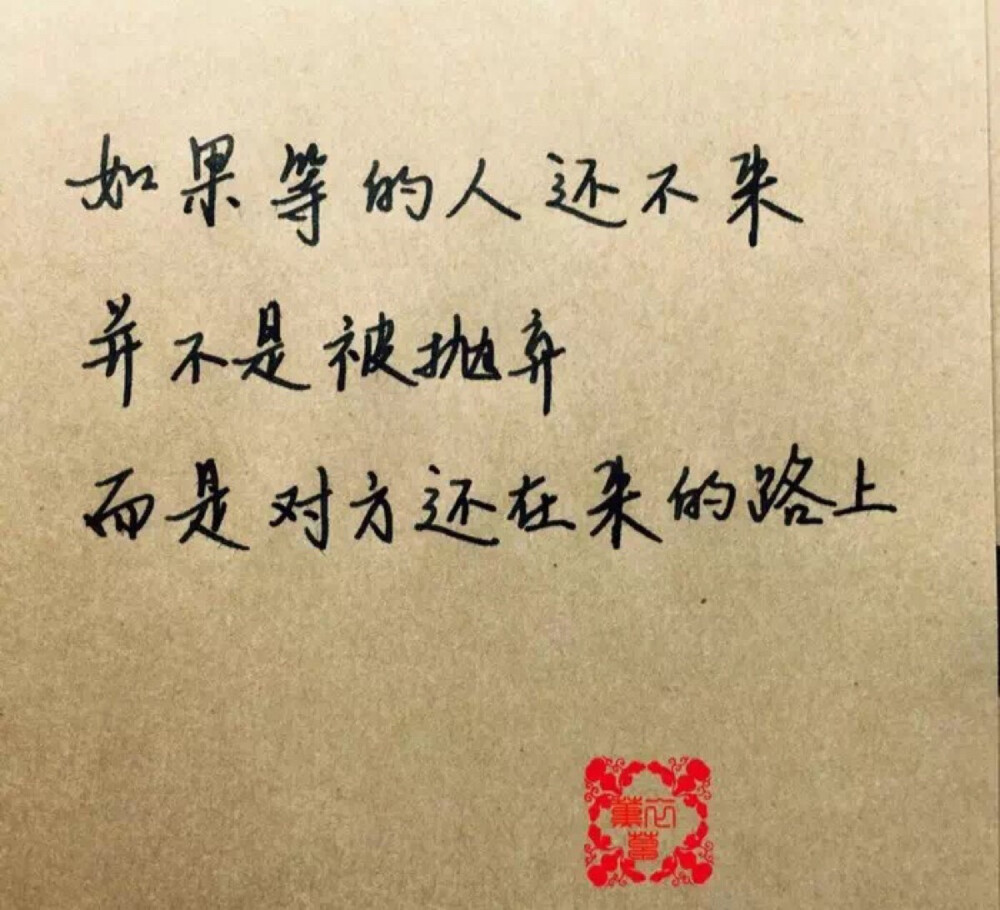 如果等的人还不来
并不是被抛弃
而是对方还在来的路上